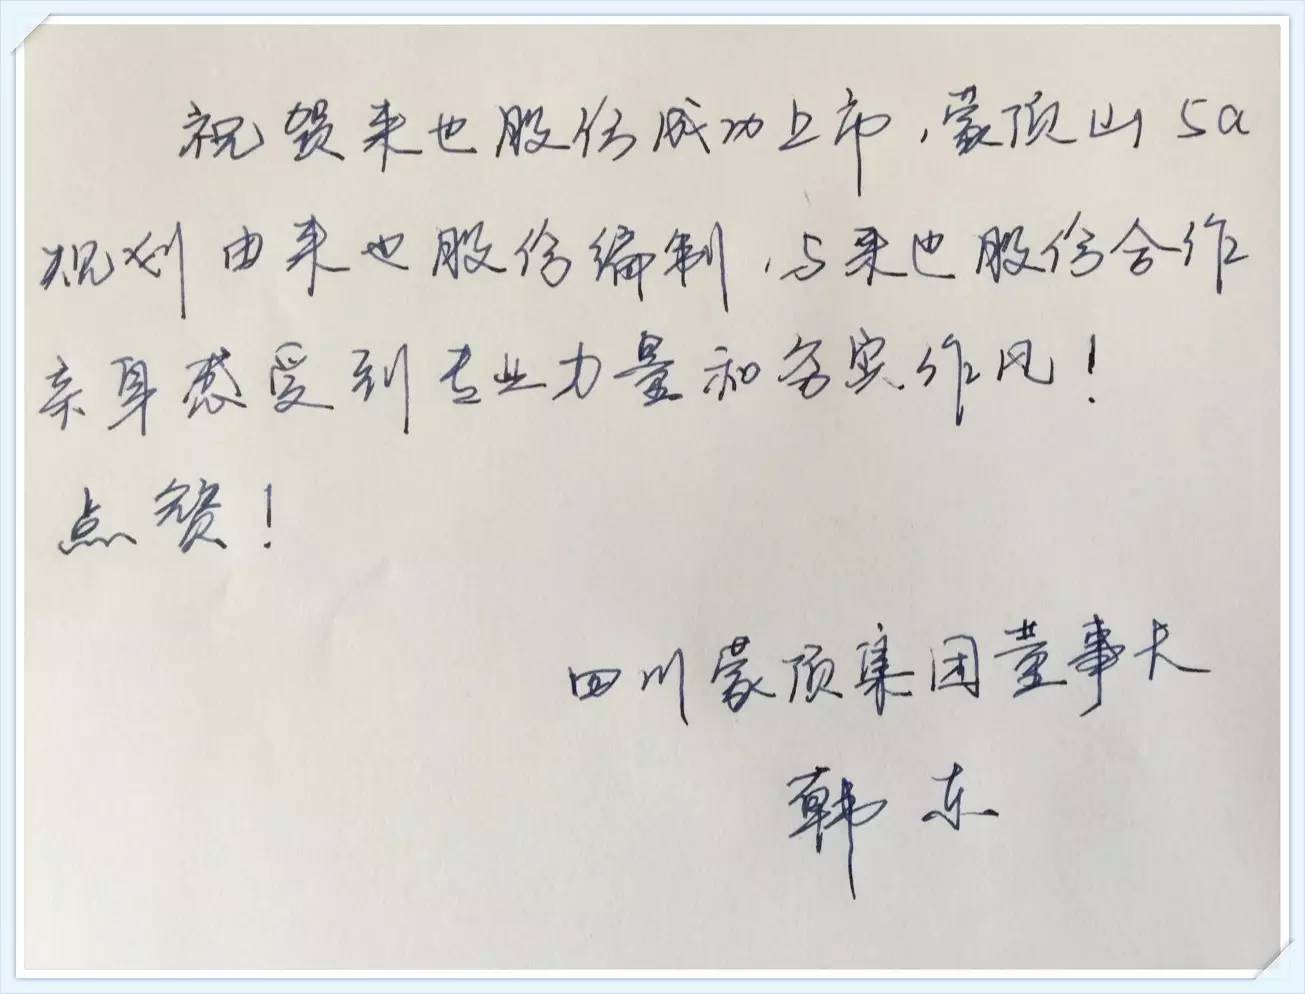 祝贺来也股份成功上市,蒙顶山5a
规划由来也股份编制,与来也股份合作
亲身感受到专业力量和务实作风!
点赞!
四川蒙顶集团董事长
韩东